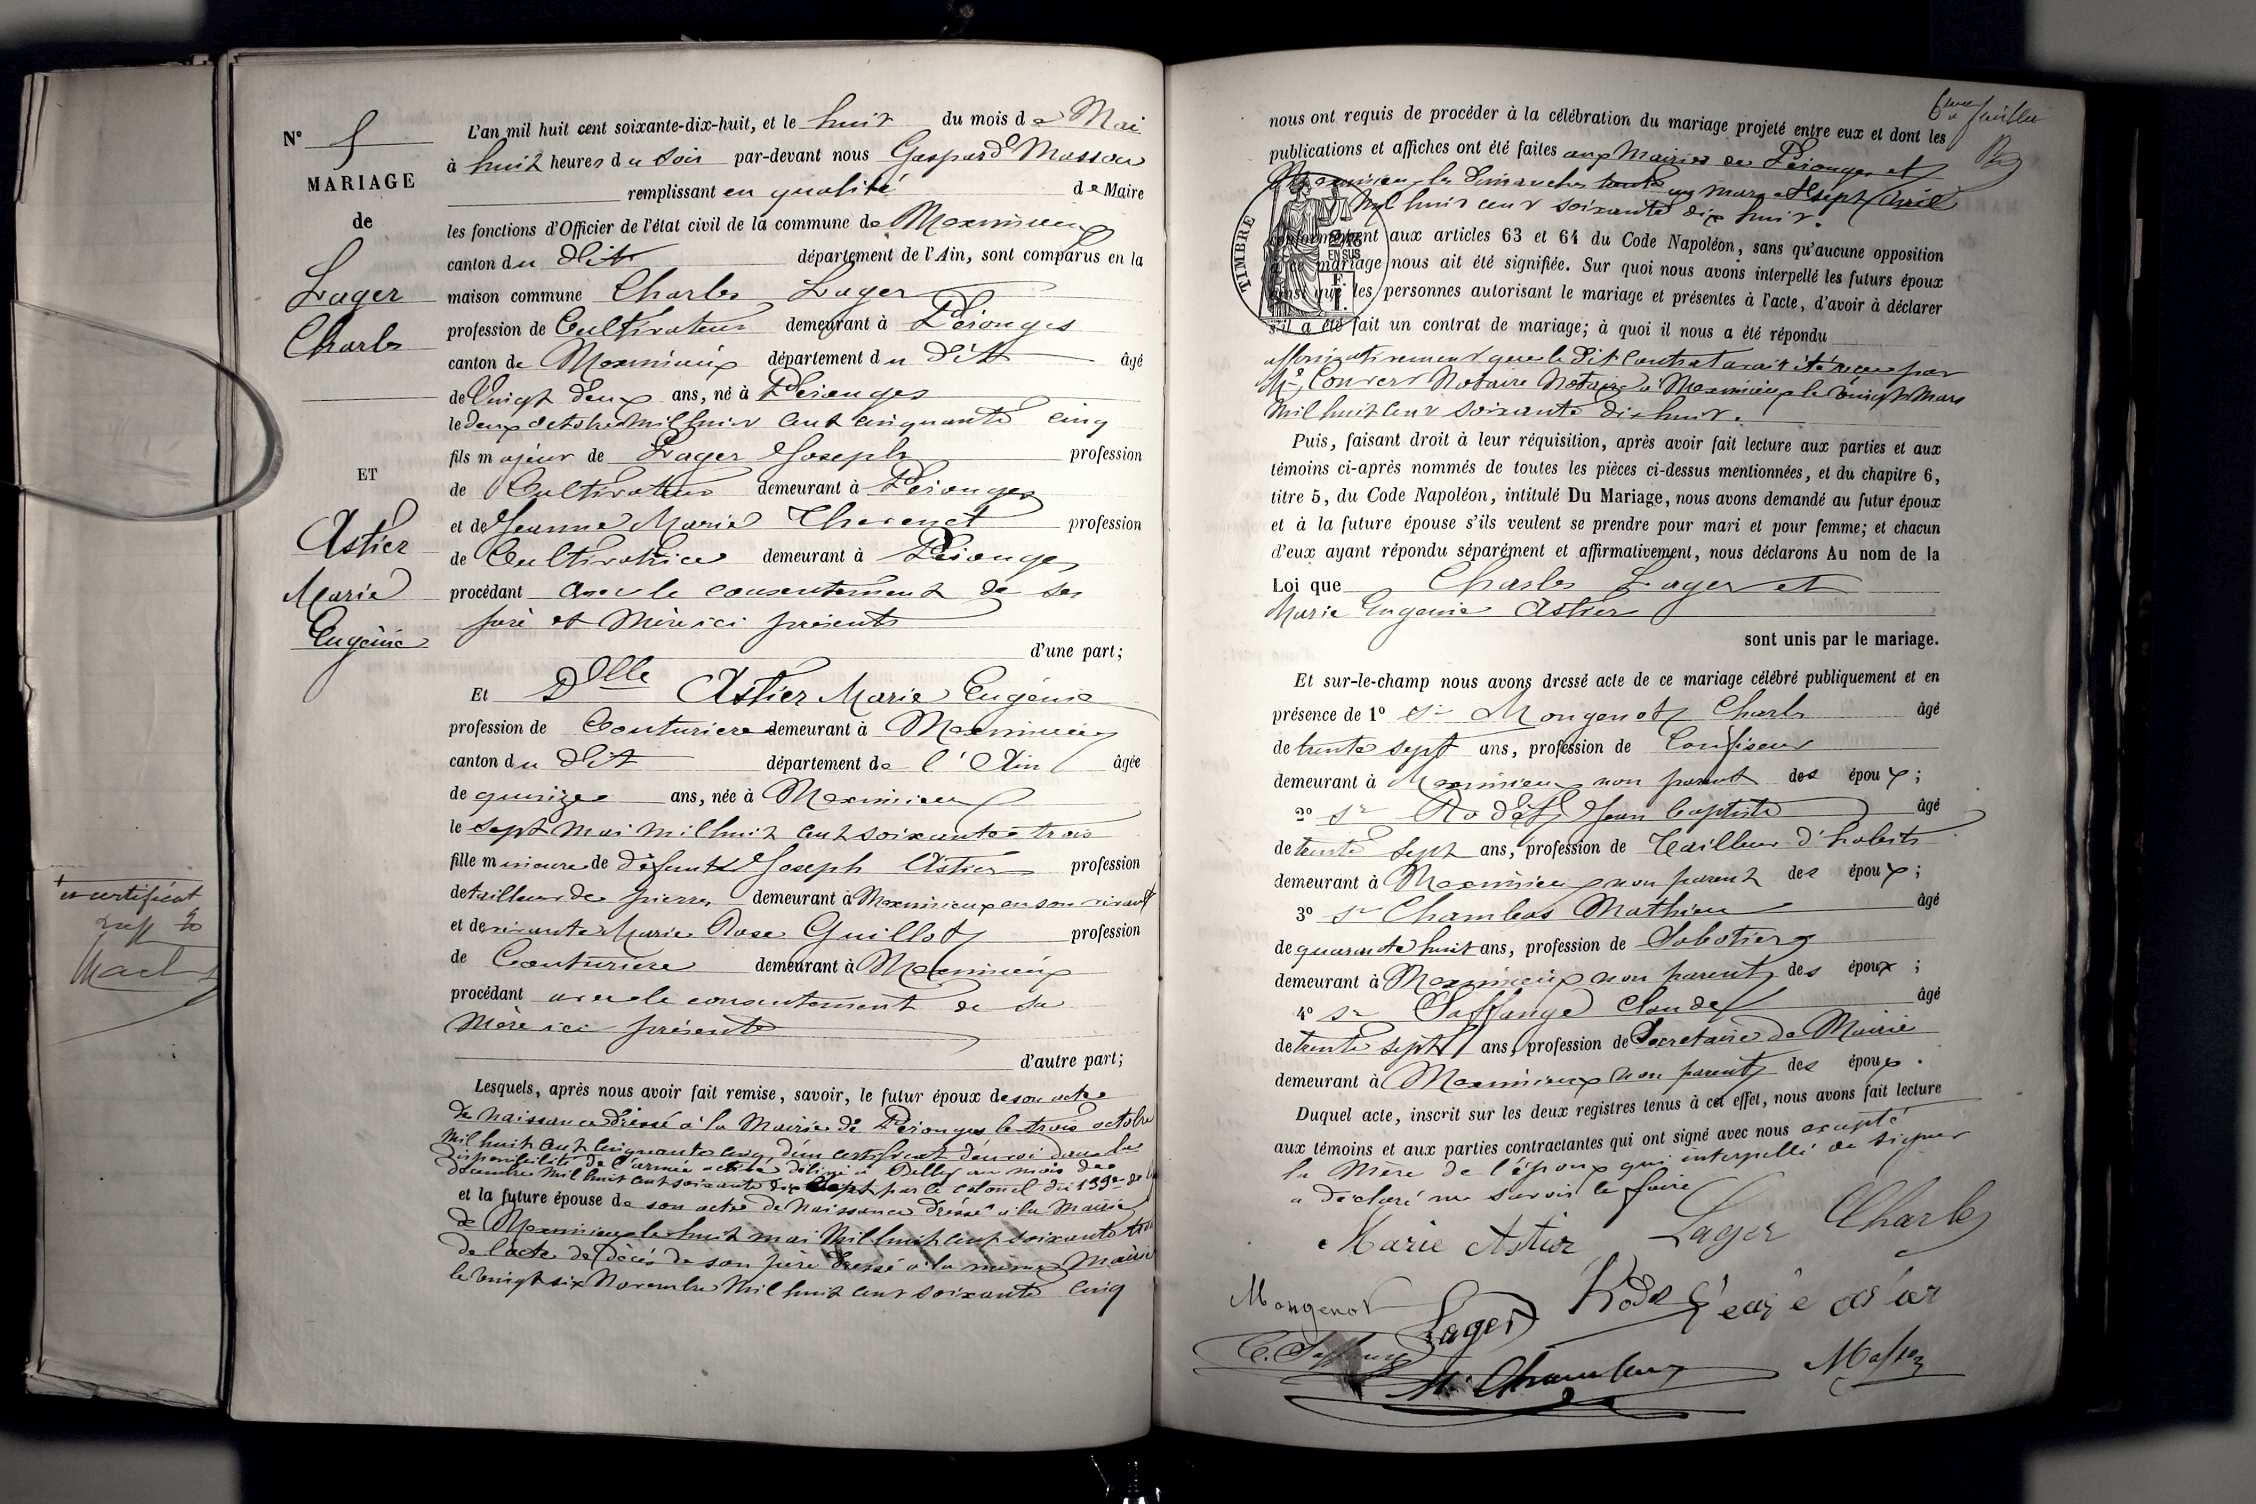 N° 5
MARIAGE
de
Lager
Charles
ET
Astier
Marie
Eugénie
L'an mil huit cent soixante-dix-huit, et le huit du mois de Mai
à huit heures du soir par-devant nous Gaspard Masson
remplissant en qualité de Maire
les fonctions d'Officier de l'état civil de la commune de Meximieux
canton du dit département de l'Ain, sont comparus en la
maison commune Charles Lager
profession de Cultivateur demeurant à Pérouges
canton de Meximieux département du dit âgé
de Vingt deux ans, né à Pérouges
le deux octobre mil huit cent cinquante cinq
fils majeur de Lager Joseph profession
de Cultivateur demeurant à Pérouges
et de Jeanne Marie profession
de Cultivatrice demeurant à Pérouges
procédant avec le consentement de ses
père et Mère ici présents
d'une part;
Et Dlle Astier Marie Eugénie
profession de Couturière demeurant à Meximieux
canton du dit département de l'Ain âgée
de quinze ans, née à Meximieux
le sept mai mil huit cent soixante trois
fille mineure de défunt Joseph Astier profession
de tailleur de pierres demeurant à Meximieux en son vivant
et de vivante Marie Rose Guillot profession
de Couturière demeurant à Meximieux
procédant avec le consentement de sa
Mère ici présente
d'autre part;
Lesquels, après nous avoir fait remise, savoir, le futur époux de son acte
de naissance dressé à la Mairie de Pérouges le trois octobre
mil huit cent cinquante cinq, d'un certificat d'envoi dans la
disponibilité de l'armée active délivré à au mois de
décembre mil huit cent soixante dix sept par le colonel du 133e de
et la future épouse de son acte de naissance dressé à la Mairie
de Meximieux le huit mai mil huit cent soixante trois
de l'acte de décès de son père dressé à la même Mairie
le vingt six Novembre mil huit cent soixante cinq
6ème feuillet
nous ont requis de procéder à la célébration du mariage projeté entre eux et dont les
publications et affiches ont été faites aux Mairies de Pérouges et
Meximieux les Dimanches trente un mars et sept avril
Mil huit cent soixante dix huit.
TIMBRE
2/10 EN SUS
conformément aux articles 63 et 64 du Code Napoléon, sans qu'aucune opposition
à ce mariage nous ait été signifiée. Sur quoi nous avons interpellé les futurs époux
ainsi que les personnes autorisant le mariage et présentes à l'acte, d'avoir à déclarer
s'il a été fait un contrat de mariage; à quoi il nous a été répondu
affirmativement que le dit contrat avait été reçu par
Me Convert Notaire Notaire à Meximieux le vingt Mars
mil huit cent soixante dix huit.
Puis, faisant droit à leur réquisition, après avoir fait lecture aux parties et aux
témoins ci-après nommés de toutes les pièces ci-dessus mentionnées, et du chapitre 6,
titre 5, du Code Napoléon, intitulé Du Mariage, nous avons demandé au futur époux
et à la future épouse s'ils veulent se prendre pour mari et pour femme; et chacun
d'eux ayant répondu séparément et affirmativement, nous déclarons Au nom de la
Loi que Charles Lager et
Marie Eugénie Astier
sont unis par le mariage.
Et sur-le-champ nous avons dressé acte de ce mariage célébré publiquement et en
présence de 1° Sr Mongenot Charles âgé
de trente sept ans, profession de Confiseur
demeurant à Meximieux non parent des époux;
2° Sr Rodet Jean Baptiste âgé
de trente sept ans, profession de Tailleur d'habits
demeurant à Meximieux non parent des époux;
3° Sr Chambas Mathieu âgé
de quarante huit ans, profession de Sabotier
demeurant à Meximieux non parent des époux;
4° Sr Saffange Claude âgé
de trente sept ans, profession de Secrétaire de Mairie
demeurant à Meximieux non parent des époux.
Duquel acte, inscrit sur les deux registres tenus à cet effet, nous avons fait lecture
aux témoins et aux parties contractantes qui ont signé avec nous excepté
la Mère de l'époux qui interpellée de signer
a déclaré ne savoir le faire
Marie Astier Lager Charles
Mongenot Lager Rodet
C. Saffange M. Chambas Masson